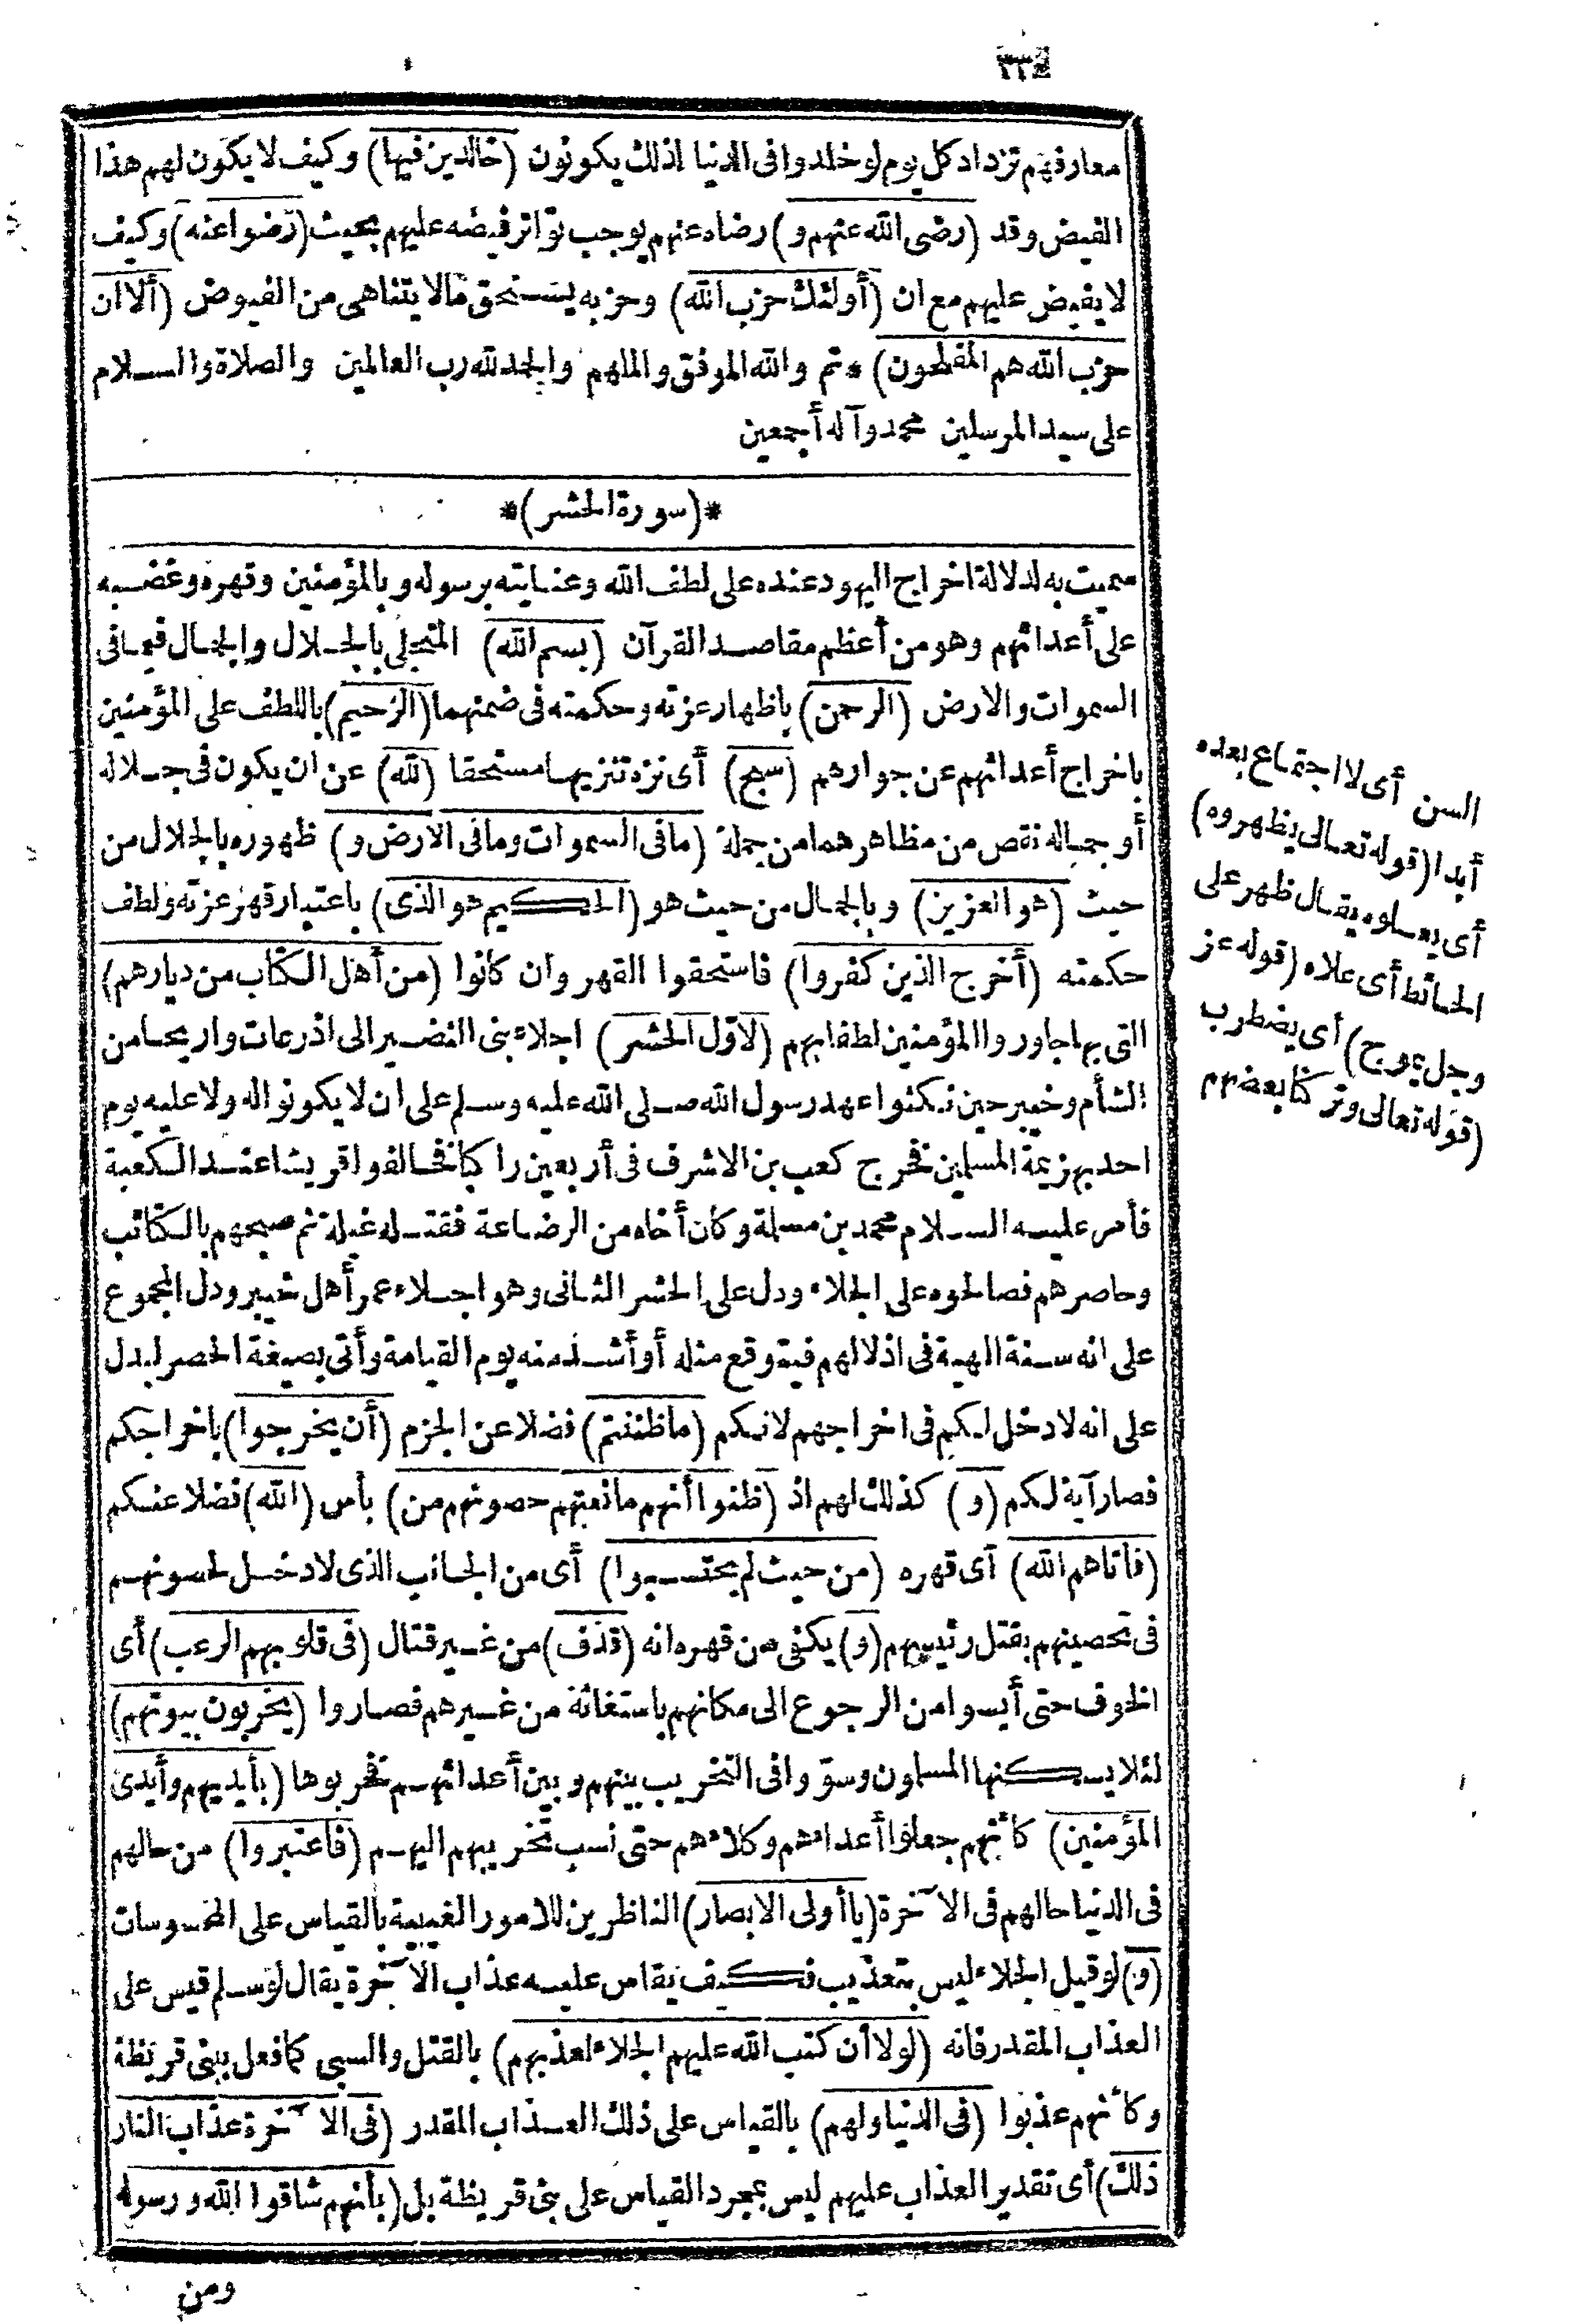 معارفهم تزداد كل يوم لو خلدوا فى الدنيا لذلك يكونون (خالدين فيها) وكيف لا يكون لهم هذا
الفيض وقد (رضى الله عنهم و) رضاه عنهم يوجب تواتر فيضه عليهم بحيث (رضوا عنه) وكيف
لا يفيض عليهم مع ان (أولئك حزب الله) وحزبه يستحق مالا يتناهى من الفيوض (ألا ان
حزب الله هم المفلحون) * تم والله الموفق والملهم والحمد لله رب العالمين والصلاة والسلام
على سيد المرسلين محمد وآله أجمعين
*(سورة الحشر)*
سميت به لدلالة اخراج اليهود عنده على لطف الله وعنايته برسوله وبالمؤمنين وقهره وغضبه
على أعدائهم وهو من أعظم مقاصد القرآن (بسم الله) المتجلى بالجلال والجمال فيما فى
السموات والارض (الرحمن) باظهار عزته وحكمته فى ضمنهما (الرحيم) باللطف على المؤمنين
باخراج أعدائهم عن جوارهم (سبح) أى نزه تنزيها مستحقا (لله) عن ان يكون فى جلاله
أو جماله نقص من مظاهرهما من جملة (ما فى السموات وما فى الارض و) ظهوره بالجلال من
حيث (هو العزيز) وبالجمال من حيث هو (الحكيم هو الذى) باعتبار قهر عزته ولطف
حكمته (أخرج الذين كفروا) فاستحقوا القهر وان كانوا (من أهل الكتاب من ديارهم)
التى بها جاوروا المؤمنين لطفا بهم (لاول الحشر) اجلاء بنى النضير الى اذرعات واريحا من
الشأم وخيبر حين نكثوا عهد رسول الله صلى الله عليه وسلم على ان لا يكونوا له ولا عليه يوم
احد بهزيمة المسلمين فخرج كعب بن الاشرف فى أربعين راكبا فخالفوا قريشا عند الكعبة
فأمر عليه السلام محمد بن مسلمة وكان أخاه من الرضاعة فقتله غيلة ثم صبحهم بالكتائب
وحاصرهم فصالحوه على الجلاء ودل على الحشر الثانى وهو اجلاء عمر أهل خيبر ودل المجموع
على انه سنة الهية فى اذلالهم فيتوقع مثله أو أشد منه يوم القيامة وأتى بصيغة الحصر ليدل
على انه لا دخل لكم فى اخراجهم لانكم (ما ظننتم) فضلا عن الجزم (أن يخرجوا) باخراجكم
فصار آية لكم (و) كذلك لهم اذ (ظنوا أنهم مانعتهم حصونهم من) بأس (الله) فضلا عنكم
(فأتاهم الله) أى قهره (من حيث لم يحتسبوا) أى من الجانب الذى لا دخل لحصونهم
فى تحصينهم بقتل رئيسهم (و) يكفى من قهره انه (قذف) من غير قتال (فى قلوبهم الرعب) أى
الخوف حتى أيسوا من الرجوع الى مكانهم باستغاثة من غيرهم فصاروا (يخربون بيوتهم)
لئلا يسكنها المسلمون وسوّوا فى التخريب بينهم وبين أعدائهم فخربوها (بأيديهم وأيدى
المؤمنين) كأنهم جعلوا أعداءهم وكلاءهم حتى نسب تخريبهم اليهم (فاعتبروا) من حالهم
فى الدنيا حالهم فى الآخرة (يا أولى الابصار) الناظرين للامور الغيبية بالقياس على المحسوسات
(و) لو قيل الجلاء ليس بتعذيب فكيف يقاس عليه عذاب الآخرة يقال لو سلم قيس على
العذاب المقدر فانه (لولا أن كتب الله عليهم الجلاء لعذبهم) بالقتل والسبى كما فعل ببنى قريظة
وكأنهم عذبوا (فى الدنيا ولهم) بالقياس على ذلك العذاب المقدر (فى الآخرة عذاب النار
ذلك) أى تقدير العذاب عليهم ليس بمجرد القياس على بنى قريظة بل (بأنهم شاقوا الله ورسوله
ومن
السن أى لا اجتماع بعده
أبدا (قوله تعالى يظهروه)
أى يعلوه يقال ظهر على
الحائط أى علاه (قوله عز
وجل يموج) أى يضطرب
(قوله تعالى وتركنا بعضهم